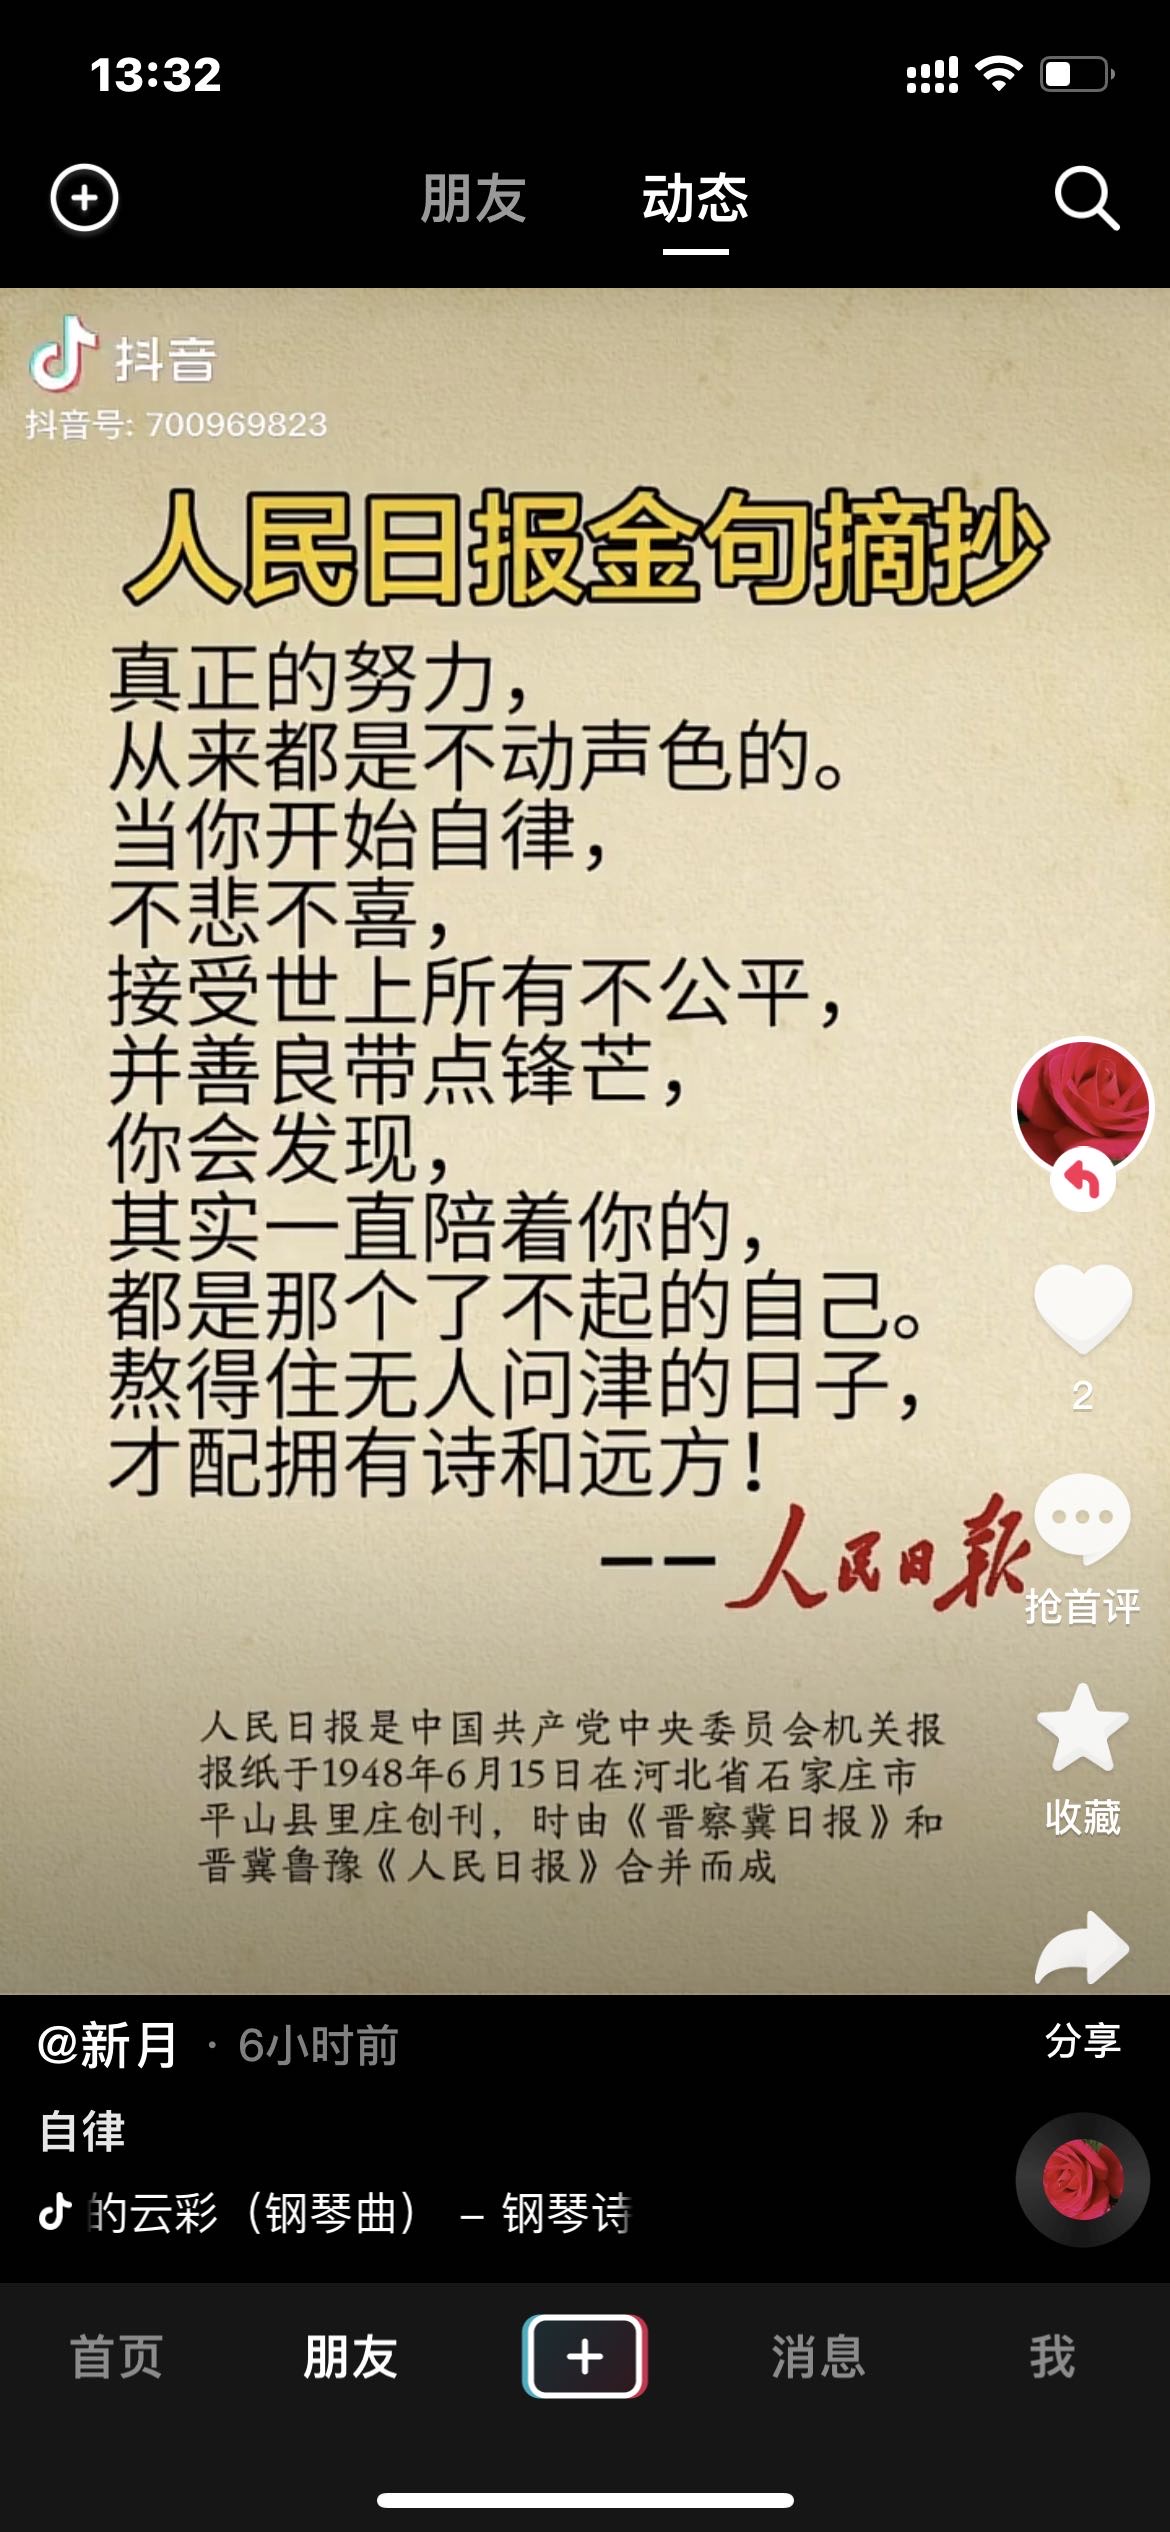 13:32
朋友
动态
抖音
抖音号: 700969823
人民日报金句摘抄
真正的努力，
从来都是不动声色的。
当你开始自律，
不悲不喜，
接受世上所有不公平，
并善良带点锋芒，
你会发现，
其实一直陪着你的，
都是那个了不起的自己。
熬得住无人问津的日子，
才配拥有诗和远方！
——人民日报
2
抢首评
收藏
分享
人民日报是中国共产党中央委员会机关报
报纸于1948年6月15日在河北省石家庄市
平山县里庄创刊，时由《晋察冀日报》和
晋冀鲁豫《人民日报》合并而成
@新月 · 6小时前
自律
的云彩（钢琴曲） – 钢琴诗
首页
朋友
消息
我